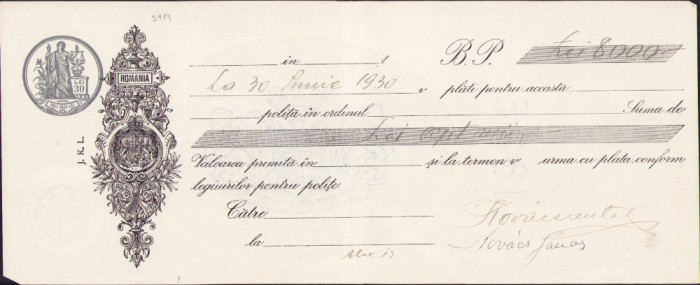 5919
in 1 B. P. Lei 8000
LEI 30
ROMANIA
La 30 Iunie 1930 v plăti pentru aceasta
poliță în ordinul Suma de
Lei opt mii
J. K. L.
Valoarea primită în și la termen v urma cu plata conform
legiuirilor pentru polițe
Către
la
Kovács Antal
Kovács János